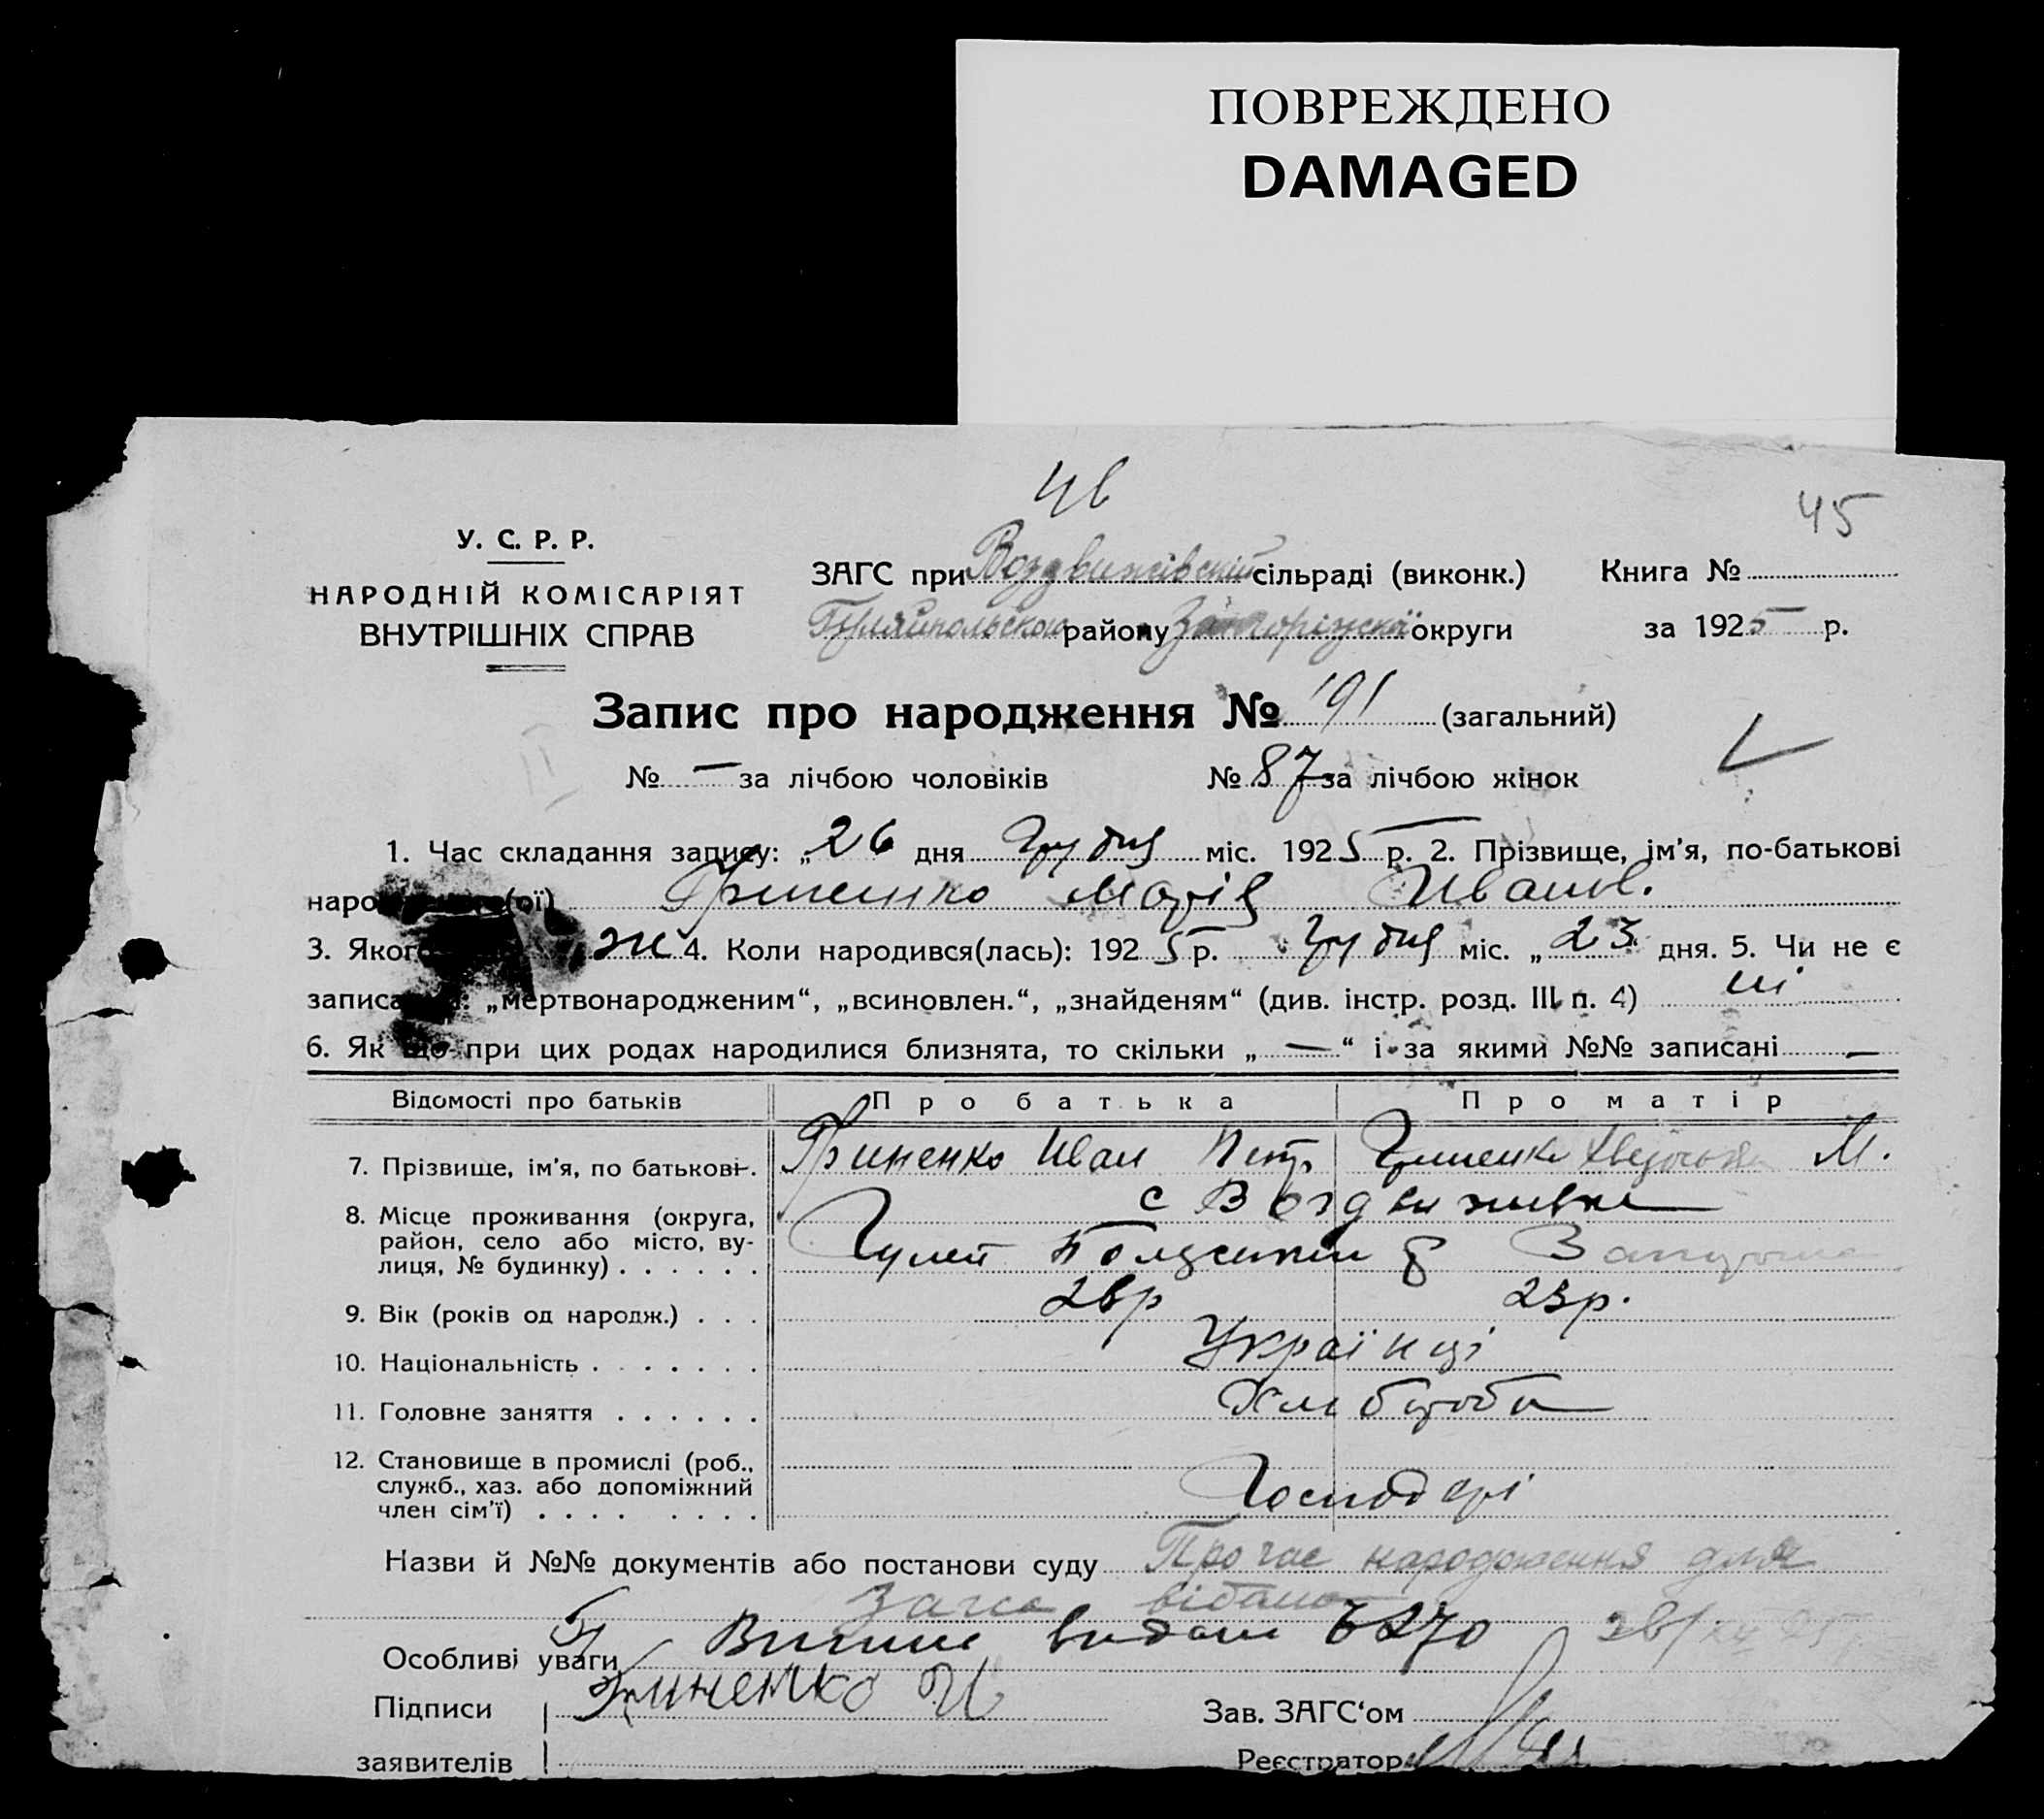 ПОВРЕЖДЕНО
DAMAGED
45
У. С. Р. Р.
НАРОДНІЙ КОМІСАРІЯТ
ВНУТРІШНІХ СПРАВ
ЗАГС при Воздвижівській сільраді (виконк.)
Гуляйпольского району Запоріжскої округи
Книга №
за 1925 р.
Запис про народження № 191 (загальний)
№ — за лічбою чоловіків № 87 за лічбою жінок
1. Час складання запису: „26 дня Грудня міс. 1925 р. 2. Прізвище, ім'я, по-батькові
наро (ої) Гриненко Марія Иванов.
3. Якого ж 4. Коли народився(лась): 1925 р. Грудня міс. „23 дня. 5. Чи не є
запис : „мертвонародженим“, „всиновлен.“, „знайденям“ (див. інстр. розд. III п. 4) ні
6. Як що при цих родах народилися близнята, то скільки „ — “ і за якими №№ записані —
Відомості про батьків Про батька Про матір
7. Прізвище, ім'я, по батькові. Гриненко Иван Петр Гриненко М.
8. Місце проживання (округа, район, село або місто, вулиця, № будинку) с Воздвижівка
Гуляй Польський
9. Вік (років од народж.) 26р 23р.
10. Національність Українці
11. Головне заняття Хліб
12. Становище в промислі (роб., служб., хаз. або допоміжний член сім'ї) Господарі
Назви й №№ документів або постанови суду Про час народження для
Загса
Особливі уваги видано 6270
Підписи Гриненко И
заявителів
Зав. ЗАГС'ом
Реєстратор